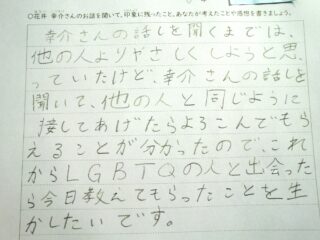 ○花井 幸介さんのお話を聞いて、印象に残ったこと、あなたが考えたことや感想を書きましょう。
幸介さんの話しを聞くまでは、
他の人よりやさしくしようと思
っていたけど、幸介さんの話しを
聞いて、他の人と同じように
接してあげたらよろこんでもら
えることが分かったので、これ
からLGBTQの人と出会った
ら今日教えてもらったことを生
かしたいです。